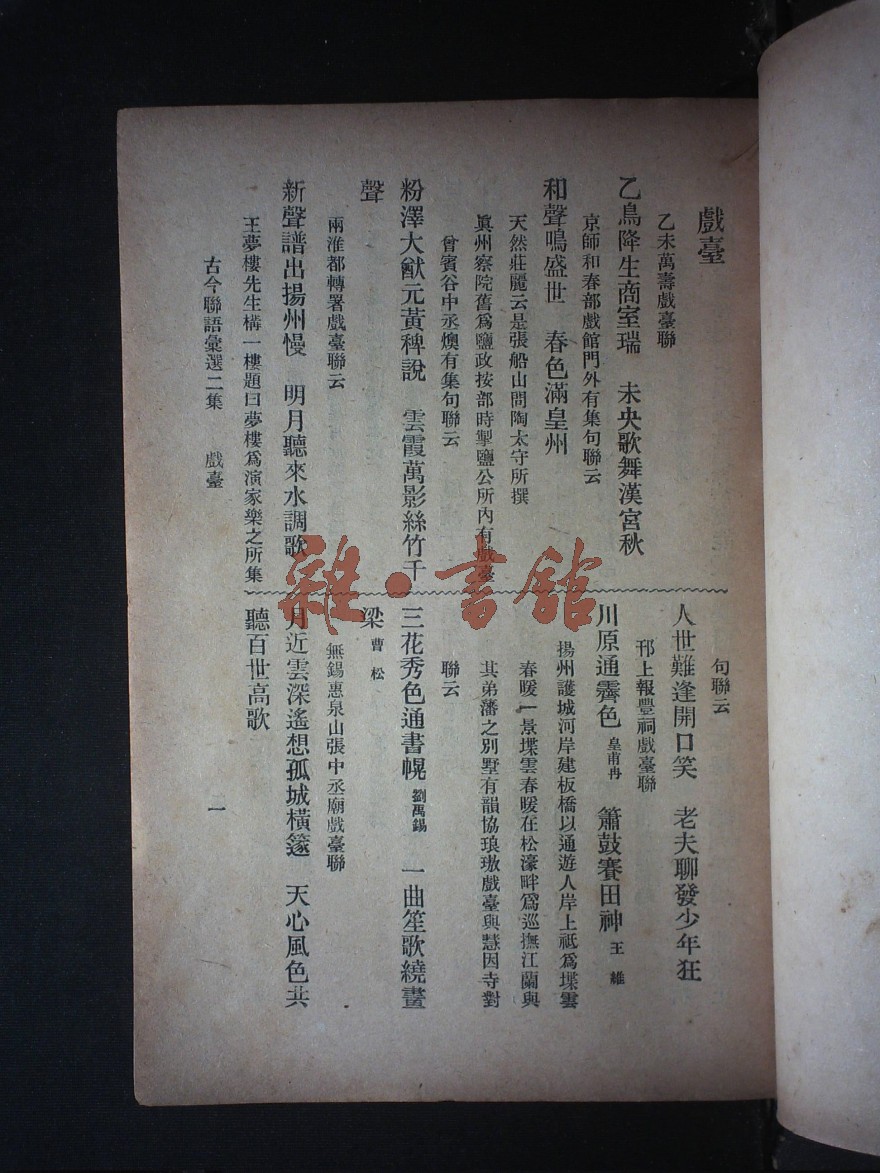 戲臺
乙未萬壽戲臺聯
乙鳥降生商室瑞　未央歌舞漢宮秋
京師和春部戲館門外有集句聯云
和聲鳴盛世　春色滿皇州
天然莊麗云是張船山問陶太守所撰
眞州察院舊爲鹽政按部時掣鹽公所內有戲臺
曾賓谷中丞燠有集句聯云
粉澤大猷元黃稗說　雲霞萬影絲竹千
聲
兩淮都轉署戲臺聯云
新聲譜出揚州慢　明月聽來水調歌
王夢樓先生構一樓題曰夢樓爲演家樂之所集
句聯云
人世難逢開口笑　老夫聊發少年狂
邗上報豐祠戲臺聯
川原通霽色 皇甫冉　簫鼓賽田神 王維
揚州護城河岸建板橋以通遊人岸上祇爲堞雲
春暖一景堞雲春暖在松濠畔爲巡撫江蘭與
其弟藩之別墅有韻協琅璈戲臺與慧因寺對
聯云
三花秀色通書幌 劉禹錫　一曲笙歌繞畫
梁 曹松
無錫惠泉山張中丞廟戲臺聯
月近雲深遙想孤城橫篴　天心風色共
聽百世高歌
古今聯語彙選二集　戲臺
一
雜·書館